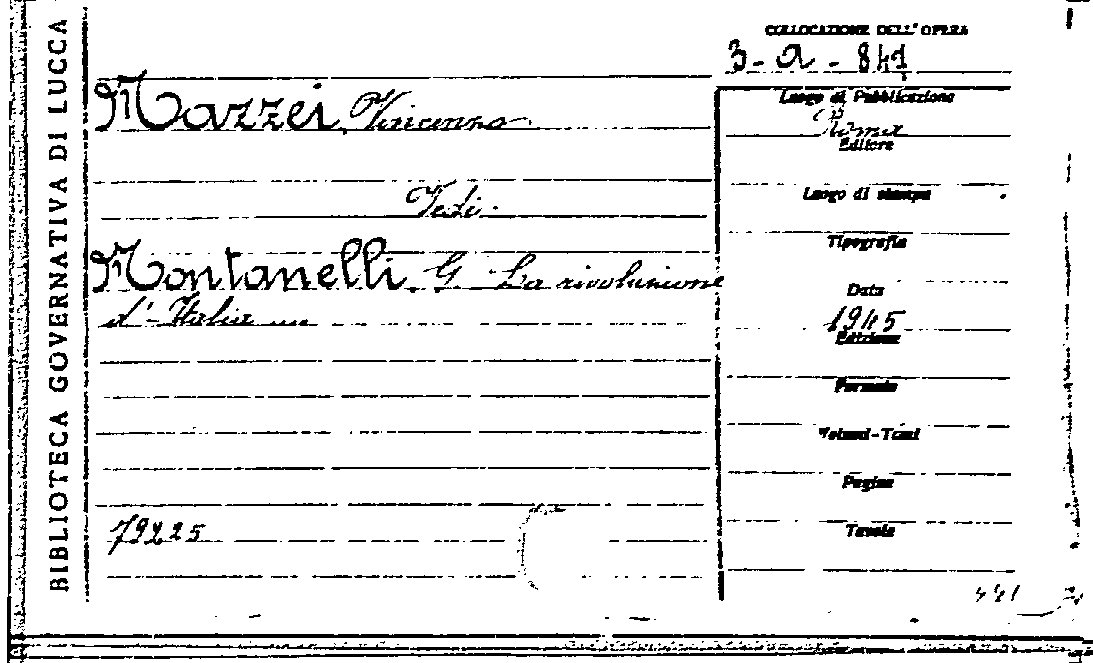 BIBLIOTECA GOVERNATIVA DI LUCCA
COLLOCAZIONE DELL'OPERA
3-a-841
Mazzei, Vincenzo
Vedi.
Montanelli. G - La rivoluzione
d'Italia
79225
Luogo di Pubblicazione
Roma
Editore
Luogo di stampa
Tipografia
Data
1945
Edizione
Formato
Volumi-Tomi
Pagine
Tavole